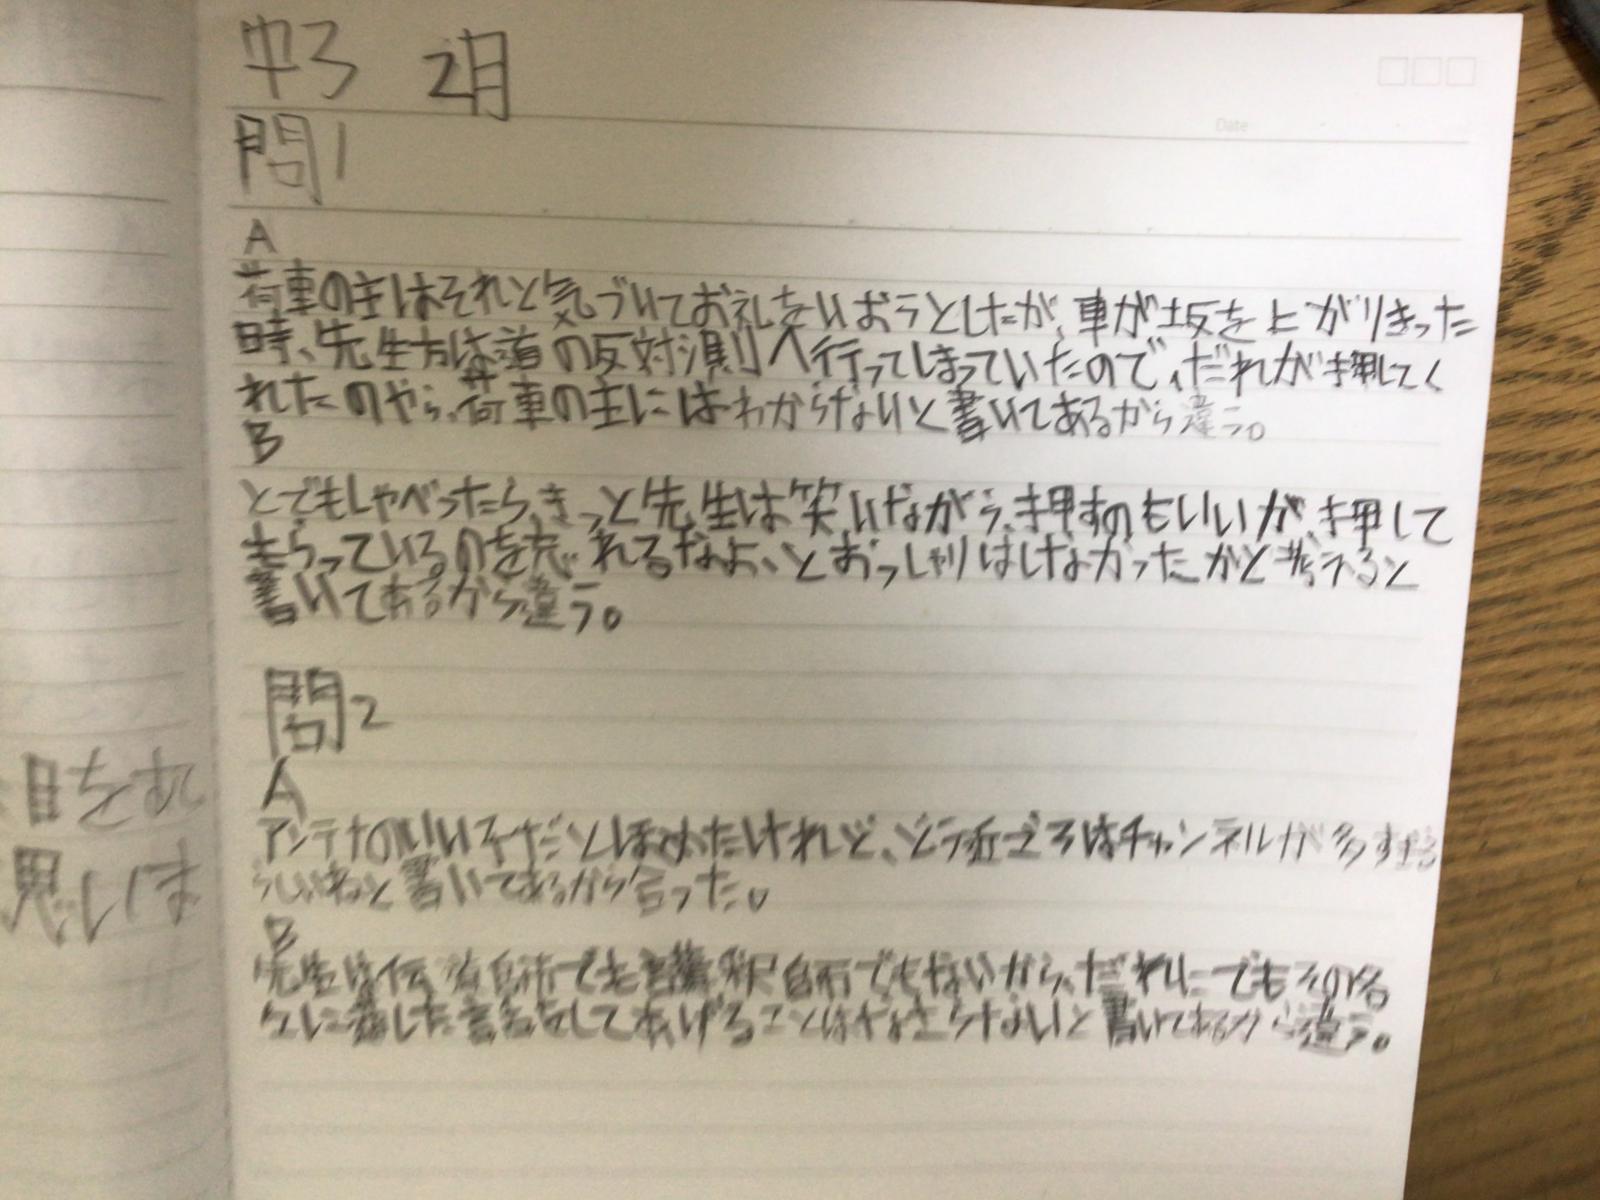 中3 2月
Date
問1
A
荷車の主はそれと気づいてお礼をいおうとしたが、車が坂を上がりきった
時、先生方は道の反対側へ行ってしまっていたので、だれが押してく
れたのやら、荷車の主にはわからないと書いてあるから違う。
B
とでもしゃべったら、きっと先生は笑いながら、押すのもいいが、押して
もらっているのを忘れるなよ、とおっしゃりはしなかったかと考えると
書いてあるから違う。
問2
A
アンテナのいい子だとほめたけれど、どう近ごろはチャンネルが多すぎる
らしいねと書いてあるから合った。
B
先生は でもないから、だれにでもその
した してあげることはなさらないと書いてあるから違う。
目をむ
思いは